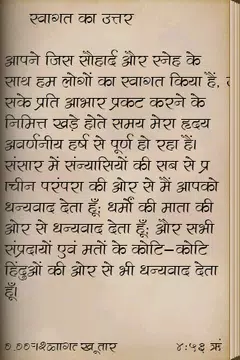 स्वागत का उत्तर
आपने जिस सौहार्द और स्नेह के
साथ हम लोगों का स्वागत किया हैं,
सके प्रति आभार प्रकट करने के
निमित्त खड़े होते समय मेरा हृदय
अवर्णनीय हर्ष से पूर्ण हो रहा हैं।
संसार में संन्यासियों की सब से प्र
चीन परंपरा की ओर से मैं आपको
धन्यवाद देता हूँ; धर्मों की माता की
ओर से धन्यवाद देता हूँ; और सभी
संप्रदायों एवं मतों के कोटि–कोटि
हिंदुओं की ओर से भी धन्यवाद देता
हूँ।